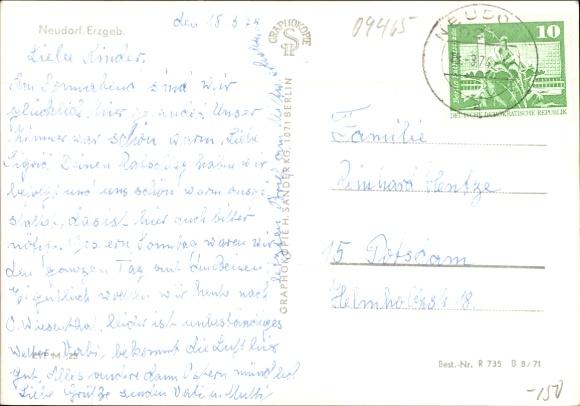 den 18.3.74
Neudorf, Erzgeb.
Liebe Kinder.
Am Sonnabend sind wir
glücklich hier gelandet. Unser
Zimmer war schön warm. Liebe
Sigrid, Deinen Ratschlag haben wir
befolgt und uns schön warm
das ist hier auch bitter
nötig. Gestern Sonntag waren wir
den ganzen Tag auf den Beinen.
Eigentlich wollten wir heute nach
O. Wiesenthal, leider ist unbeständiges
Wetter. Vati, bekommt die Luft
gut. Alles andere dann Ostern mündlich
Liebe Grüße senden Vati u. Mutti
GRAPHOKOPIE
GRAPHOKOPIE H. SANDER KG, 1071 BERLIN
09465
NEUDO
3.74
10
DEUTSCHE DEMOKRATISCHE REPUBLIK
Familie
Reinhard Hentze
15 Potsdam
Helmholtzstr. 18.
Best.-Nr. R 735 B 8/71
-150